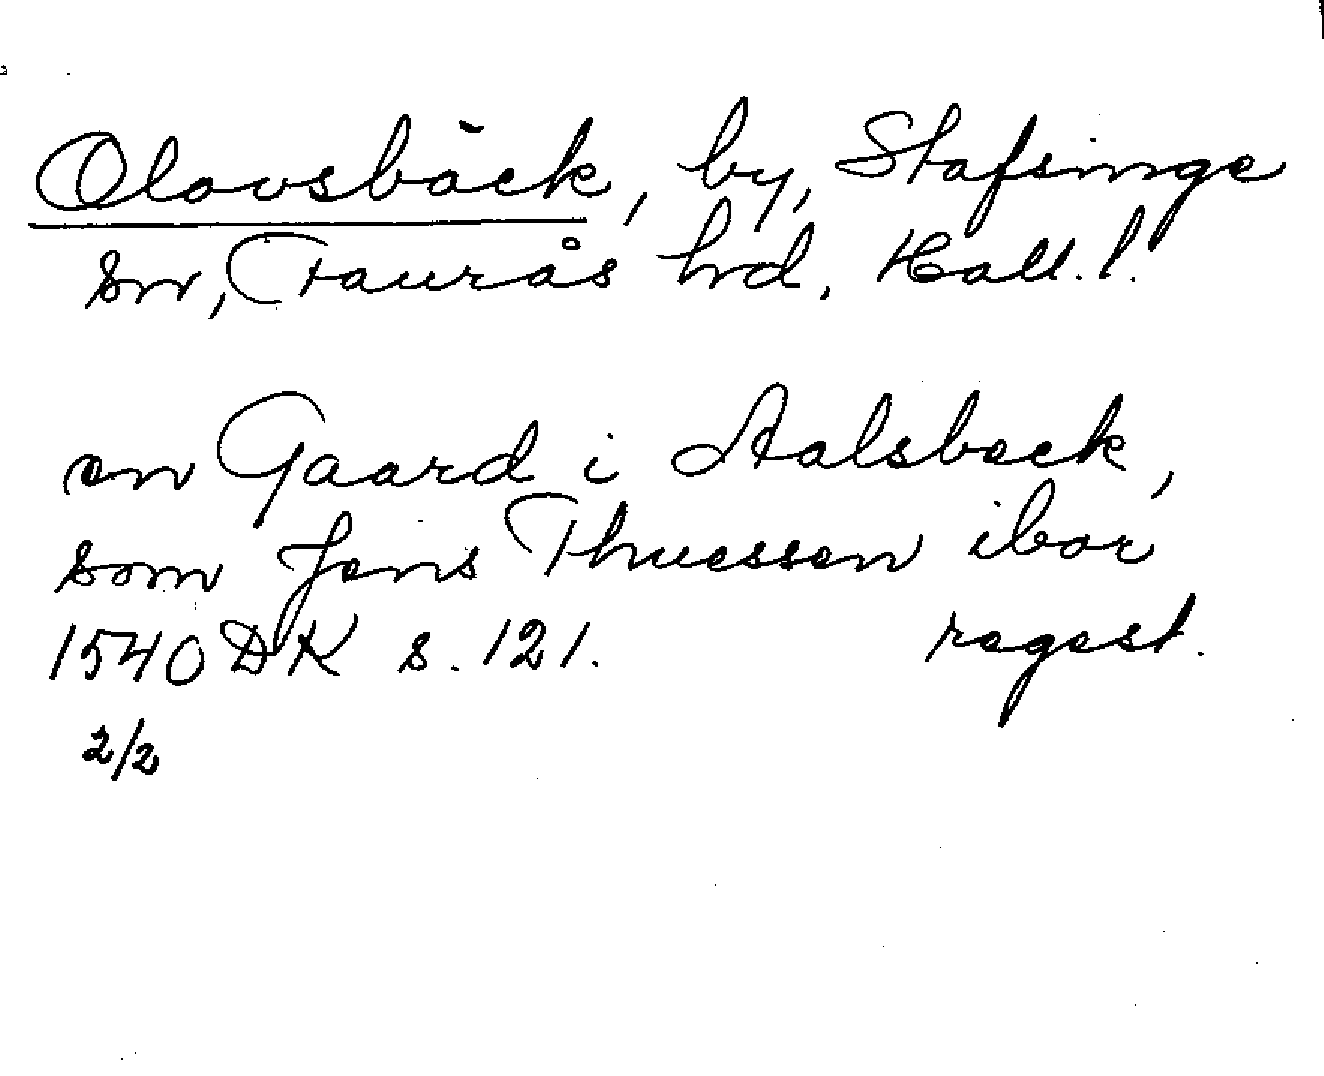 Olovsbäck, by, Stafsinge
sn, Faurås hd, Hall. l.
en Gaard i Aalsbeck,
som Jens Thuessen iboer
1540 DK s. 121. regest.
2/2